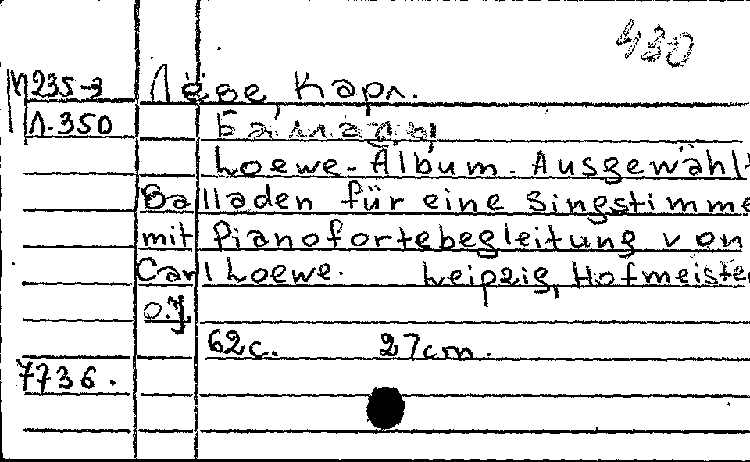 430
М 235-з Лёве, Карл.
Л. 350 Баллады
Loewe-Album. Ausgewählt
Balladen für eine Singstimme
mit Pianofortebegleitung von
Carl Loewe. Leipzig, Hofmeister
o.J.
62 с. 27 cm.
7736.